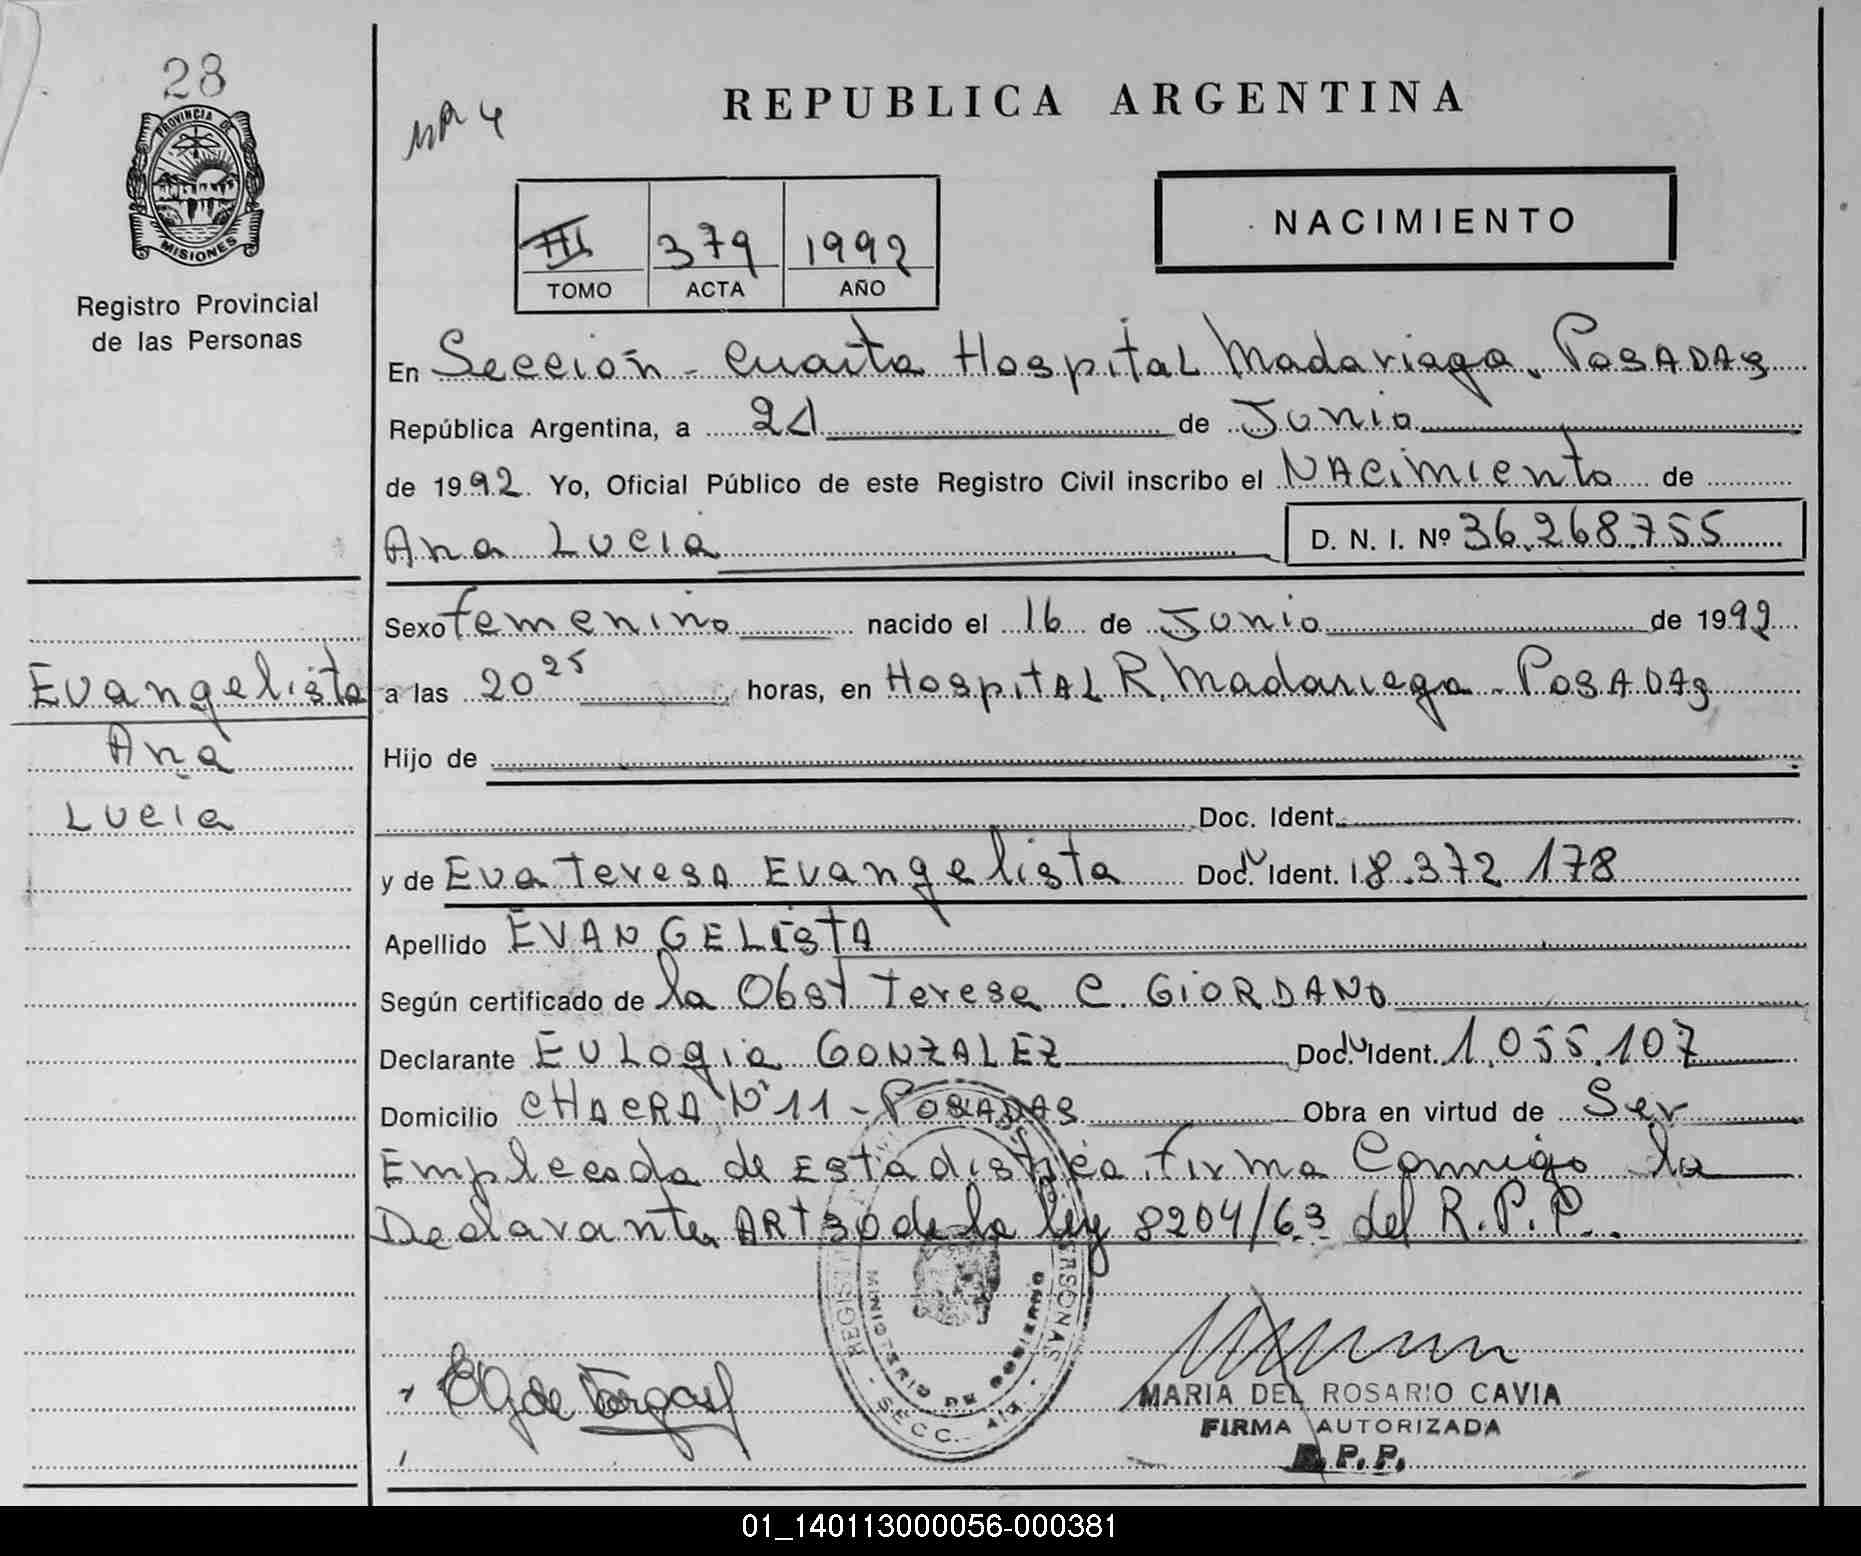 28
PROVINCIA DE
MISIONES
Registro Provincial
de las Personas
REPUBLICA ARGENTINA
NACIMIENTO
III 379 1992
TOMO ACTA AÑO
En Sección - Cuarta Hospital Madariaga. POSADAS
República Argentina, a 24 de Junio
de 1992. Yo, Oficial Público de este Registro Civil inscribo el NACimiento de
Ana Lucia D. N. I. Nº 36.268.755
Sexo femenino nacido el 16 de Junio de 1992
a las 20 25 horas, en HospitAL R. Madariaga - POSADAS
Hijo de
Doc. Ident.
y de Eva Teresa Evangelista Doc. Ident. 18.372.178
Apellido EVANGELISTA
Según certificado de la Obst Teresa C. GIORDANO
Declarante EULogia GONZALEZ Doc. Ident. 1.055.107
Domicilio CHACRA Nº 11 - POSADAS Obra en virtud de Ser
Empleada de Estadistica. firma Conmigo la
Declarante. ART 30 de la ley 8204/63 del R.P.P.
Evangelista
Ana
Lucia
REGIST PERSONAS
MINISTERIO DE GOBIERNO
SECC. 4ta
MARIA DEL ROSARIO CAVIA
FIRMA AUTORIZADA
R. P. P.
01_140113000056-000381